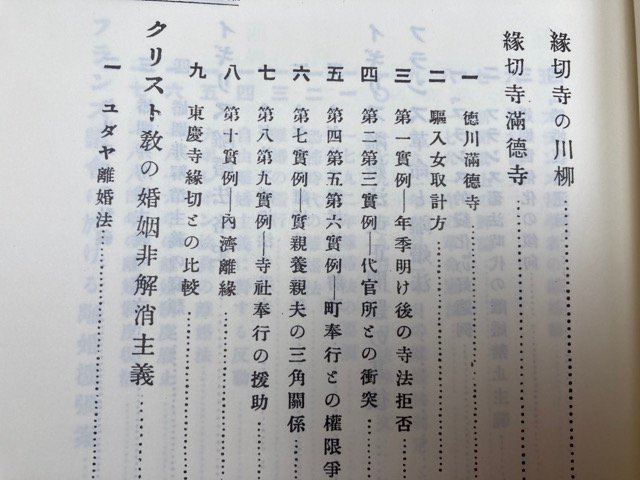 緣切寺の川柳
緣切寺滿德寺
一 德川滿德寺
二 驅入女取計方
三 第一實例―年季明け後の寺法拒否
四 第二第三實例―代官所との衝突
五 第四第五第六實例―町奉行との權限爭
六 第七實例―實親養親夫の三角關係
七 第八第九實例―寺社奉行の援助
八 第十實例―內濟離緣
九 東慶寺緣切との比較
クリスト敎の婚姻非解消主義
一 ユダヤ離婚法